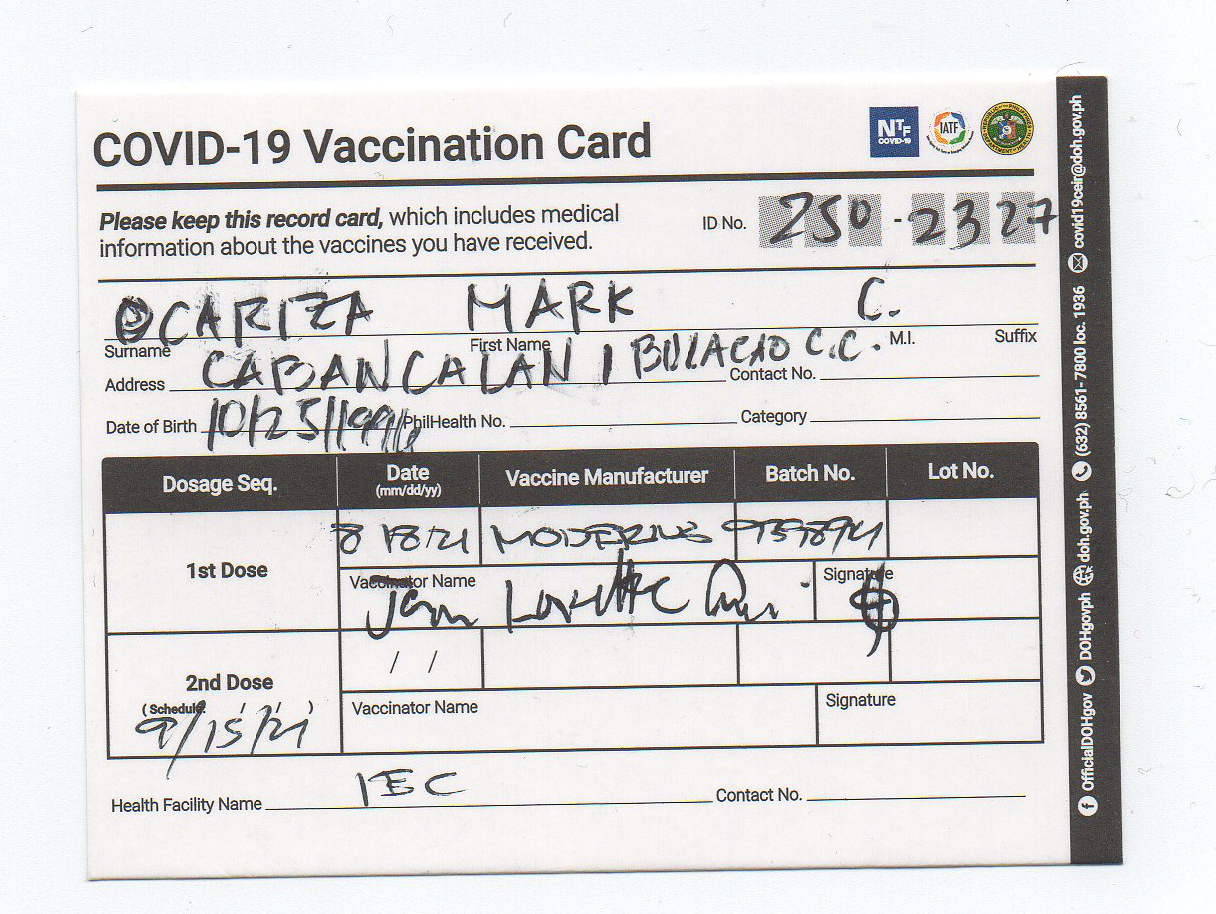 COVID-19 Vaccination Card
NTF COVID-19 IATF
Please keep this record card, which includes medical
information about the vaccines you have received.
ID No. 250 - 2327
OCARIZA MARK C.
Surname First Name M.I. Suffix
Address CABANCALAN 1 BULACAO C.C. Contact No.
Date of Birth 10/25/1996 PhilHealth No. Category
Dosage Seq. Date (mm/dd/yy) Vaccine Manufacturer Batch No. Lot No.
1st Dose 8 18 21
Vaccinator Name Signature
2nd Dose / /
(Schedule: / / ) 9/15/21
Vaccinator Name Signature
Health Facility Name IEC Contact No.
OfficialDOHgov DOHgovph doh.gov.ph (632) 8561-7800 loc. 1936 covid19ceir@doh.gov.ph